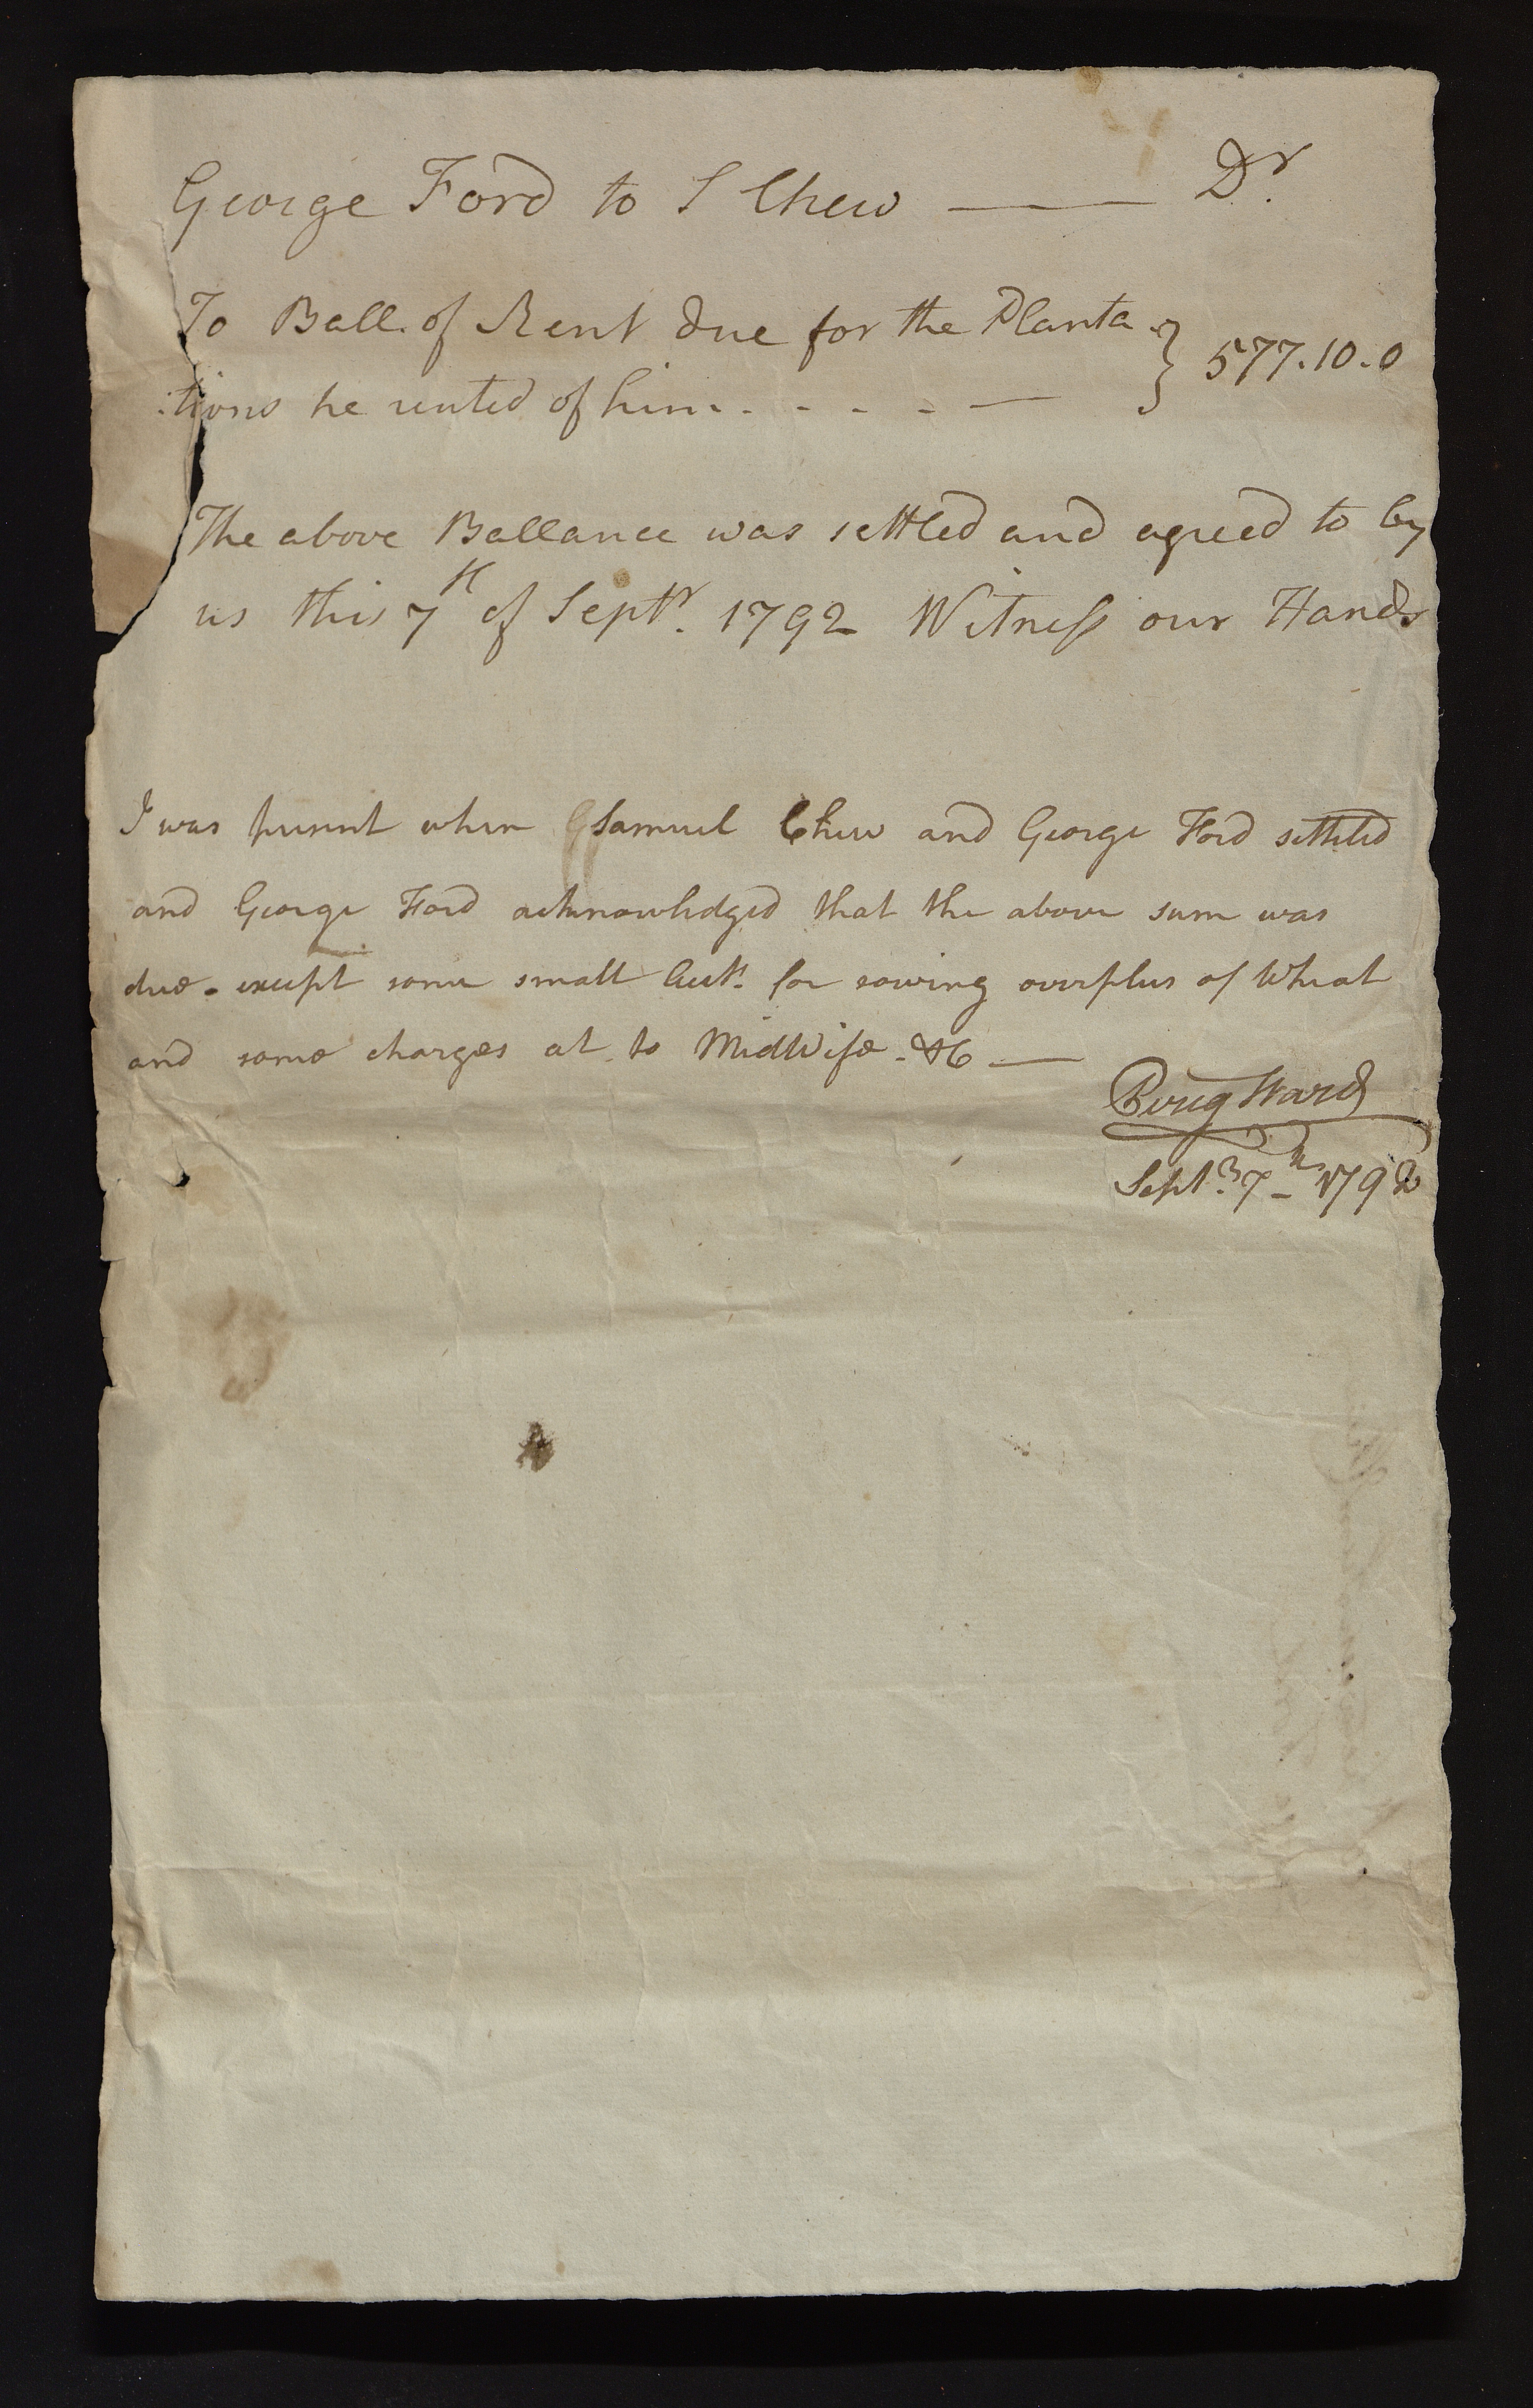 George Ford to S Chew —— Dr.
To Ball. of Rent due for the Planta
:tions he rented of him . - - - - — } 577.10.0
The above Ballance was settled and agreed to by
us this 7th of Septr. 1792 Witness our Hands
I was present when Samuel Chew and George Ford settled
and George Ford acknowledged that the above sum was
due - except some small Acct. for sowing overplus of Wheat
and some charges at to MidWife - &c —
Ward
Septr. 7th 1792